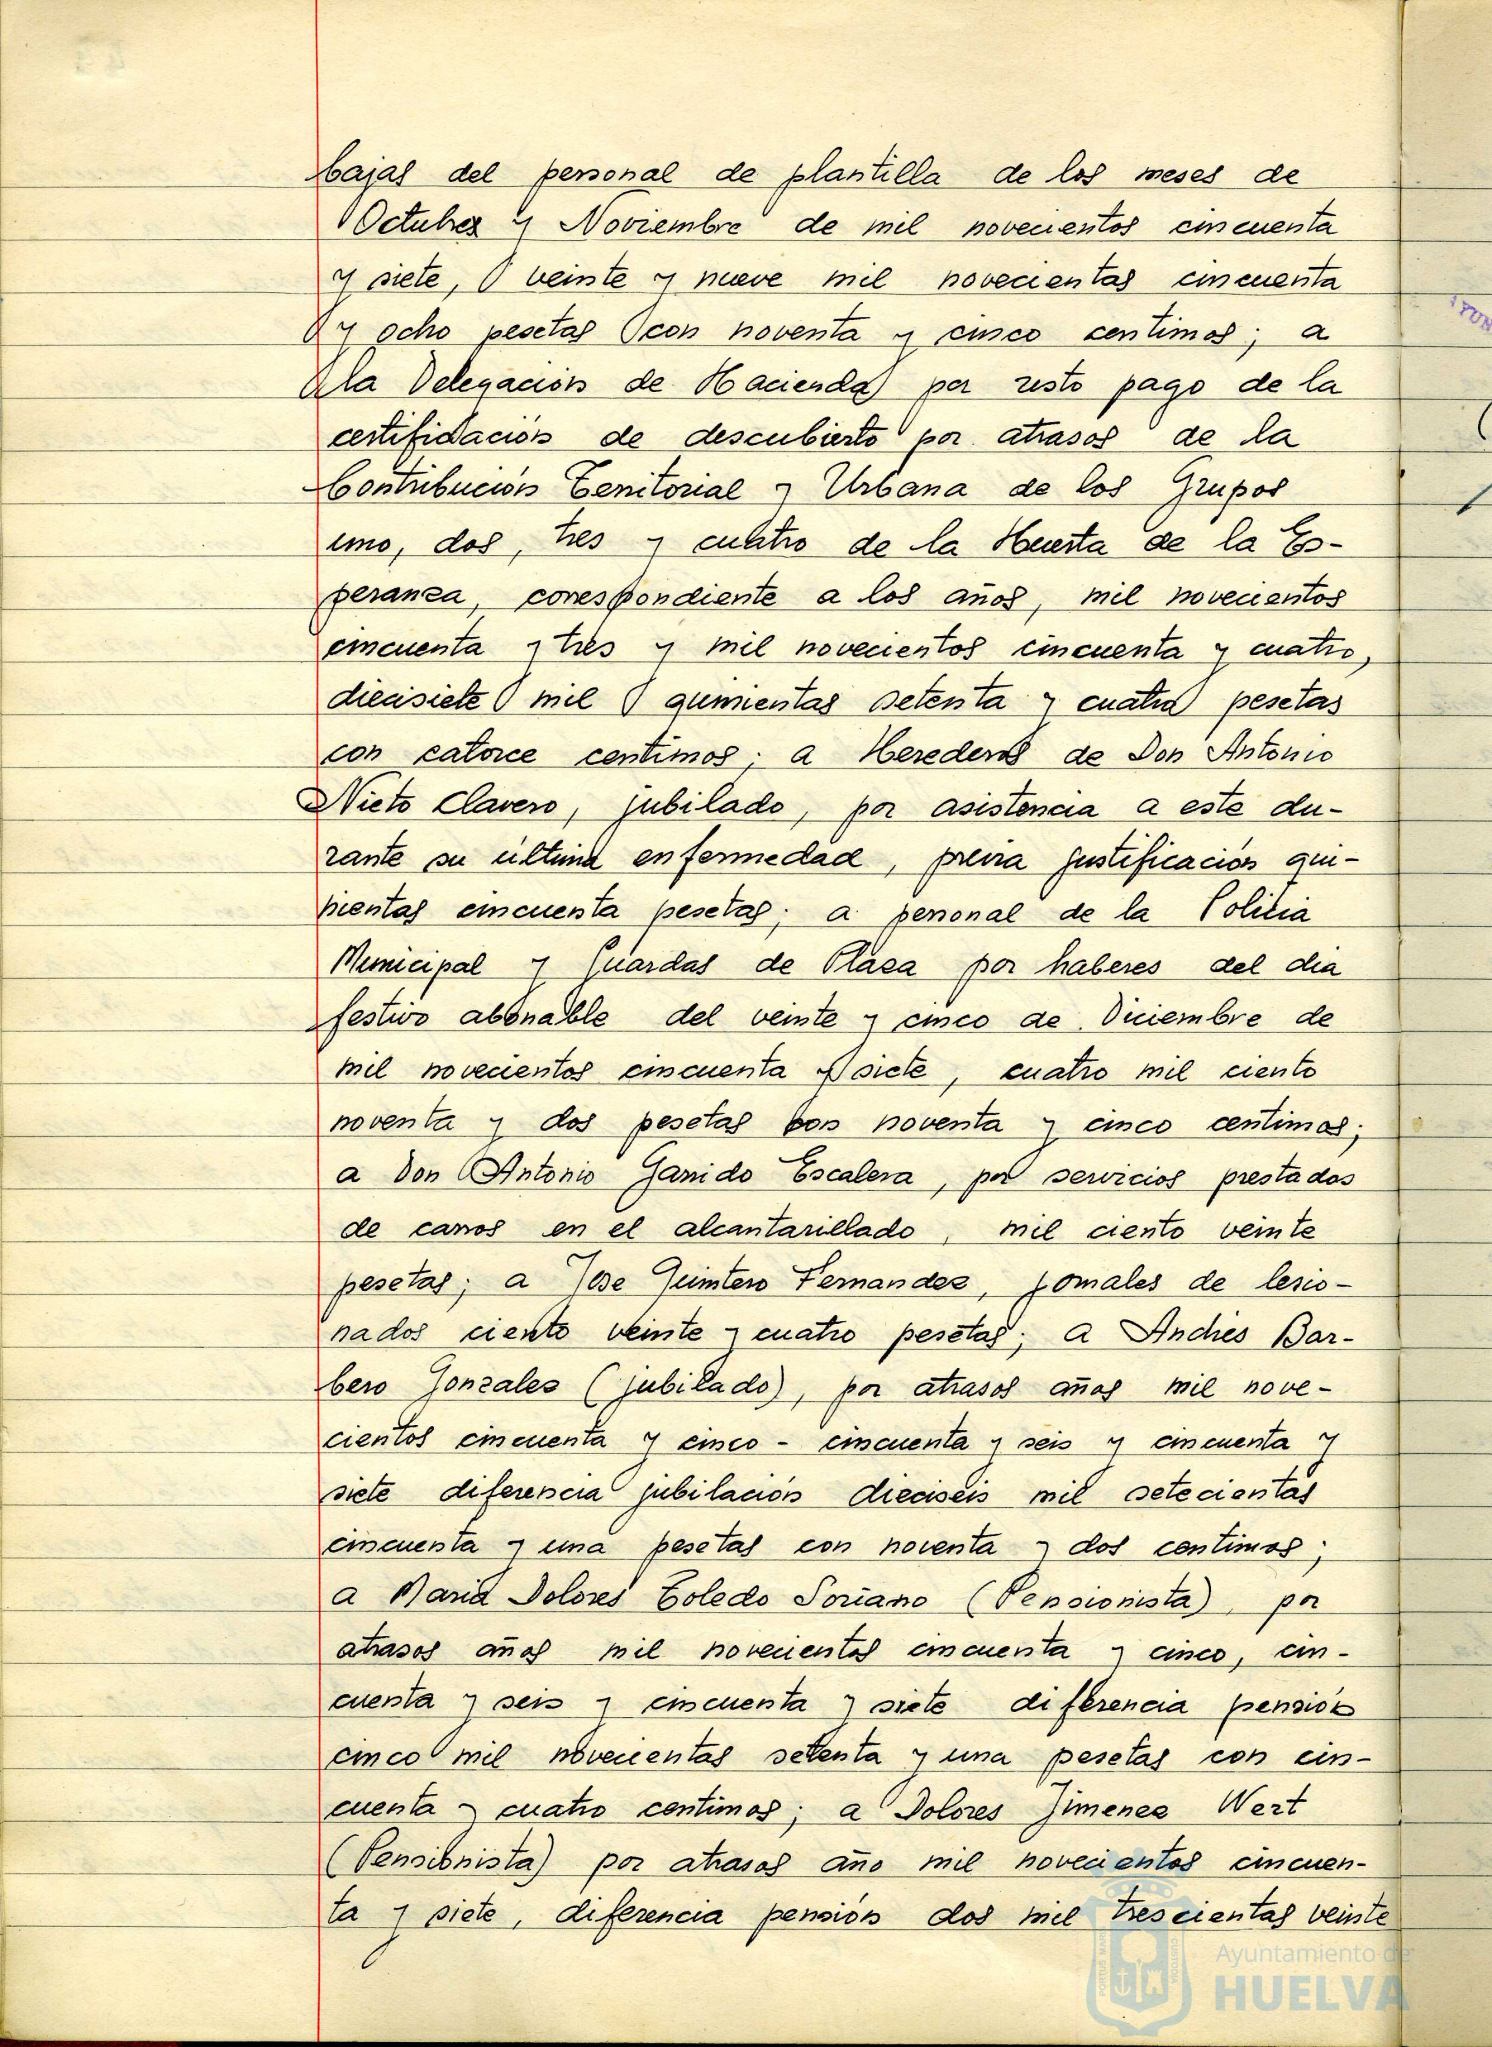 bajas del personal de plantilla de los meses de
Octubre y Noviembre de mil novecientos cincuenta
y siete, veinte y nueve mil novecientas cincuenta
y ocho pesetas con noventa y cinco centimos; a
la Delegación de Hacienda por resto pago de la
certificación de descubierto por atrasos de la
Contribución Territorial y Urbana de los Grupos
uno, dos, tres y cuatro de la Huerta de la Es-
peranza, correspondiente a los años, mil novecientos
cincuenta y tres y mil novecientos cincuenta y cuatro,
diecisiete mil quinientas setenta y cuatro pesetas
con catorce centimos; a Herederos de Don Antonio
Nieto Clavero, jubilado, por asistencia a este du-
rante su última enfermedad, previa justificación qui-
nientas cincuenta pesetas; a personal de la Policia
Municipal y Guardas de Plaza por haberes del dia
festivo abonable del veinte y cinco de Diciembre de
mil novecientos cincuenta y siete, cuatro mil ciento
noventa y dos pesetas con noventa y cinco centimos;
a Don Antonio Garrido Escalera, por servicios prestados
de carros en el alcantarillado, mil ciento veinte
pesetas; a Jose Quintero Fernandez, jornales de lesio-
nados ciento veinte y cuatro pesetas; a Andrés Bar-
bero Gonzales (jubilado), por atrasos años mil nove-
cientos cincuenta y cinco - cincuenta y seis y cincuenta y
siete diferencia jubilación dieciseis mil setecientas
cincuenta y una pesetas con noventa y dos centimos;
a Maria Dolores Toledo Soriano (Pensionista), por
atrasos años mil novecientos cincuenta y cinco, cin-
cuenta y seis y cincuenta y siete diferencia pensión
cinco mil novecientas setenta y una pesetas con cin-
cuenta y cuatro centimos; a Dolores Jimenez Wert
(Pensionista) por atrasos año mil novecientos cincuen-
ta y siete, diferencia pensión dos mil trescientas veinte
Ayuntamiento de
HUELVA